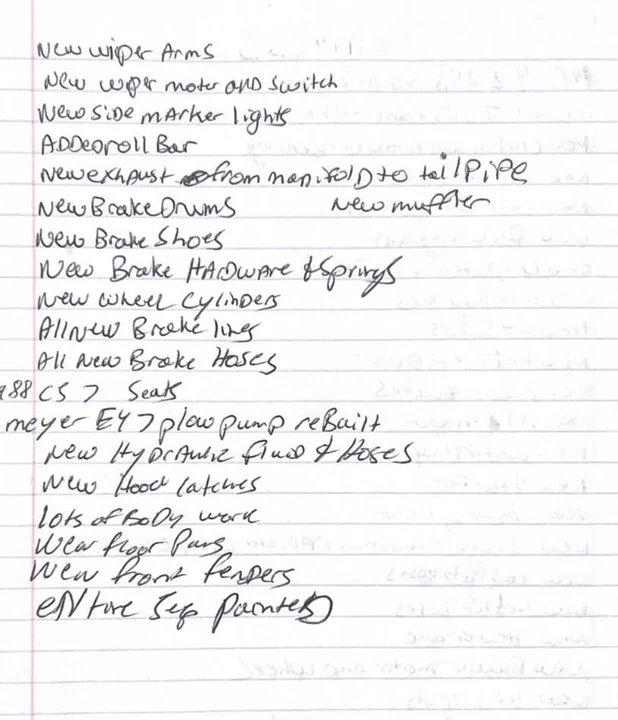 New wiper Arms
New wiper motor and Switch
New Side mArker lights
ADDed roll Bar
New exhaust from maniFolD to tailPiPe
New Brake Drums New muffler
New Brake Shoes
New Brake HArDware & Springs
New wheel Cylinders
All New Brake lines
All New Brake Hoses
88 CJ 7 Seats
meyer E47 plow pump reBuilt
New HyDrAulic fluid & Hoses
New Hood latches
lots of BoDy work
New floor Pans
New front fenders
eNtire Jeep PainteD